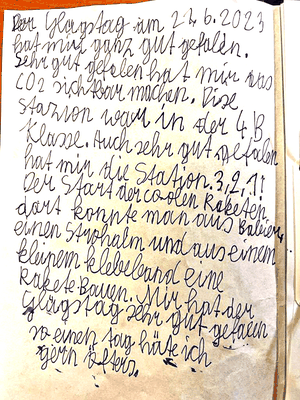 Der Glagstag am 21.6.2023
hat mir ganz gut gefalen.
Sehr gut gefalen hat mir das
CO2 sichtbar machen. Dise
Stazion war in der 4.B
Klasse. Auch sehr gut gefalen
hat mir die Station. 3,2,1!
Der Start der coolen Raketen
dort konnte man aus
einen Strohalm und aus einem
kleinem klebeband eine
Rakete Bauen. Mir hat der
Glagstag sehr gut gefalen
so einen tag häte ich
gern öfters.